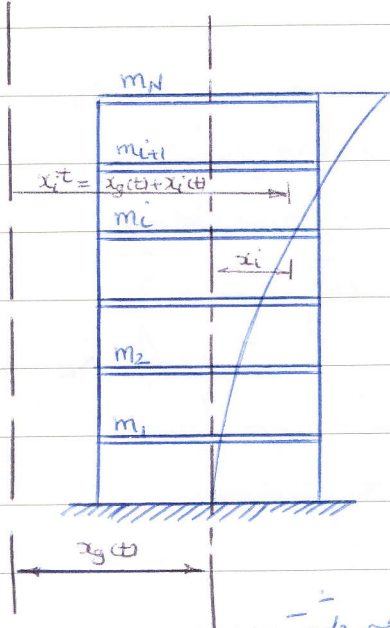 m_N
m_{i+1}
x_i^t = x_g(t)+x_i(t)
m_i
x_i
m_2
m_1
x_g(t)